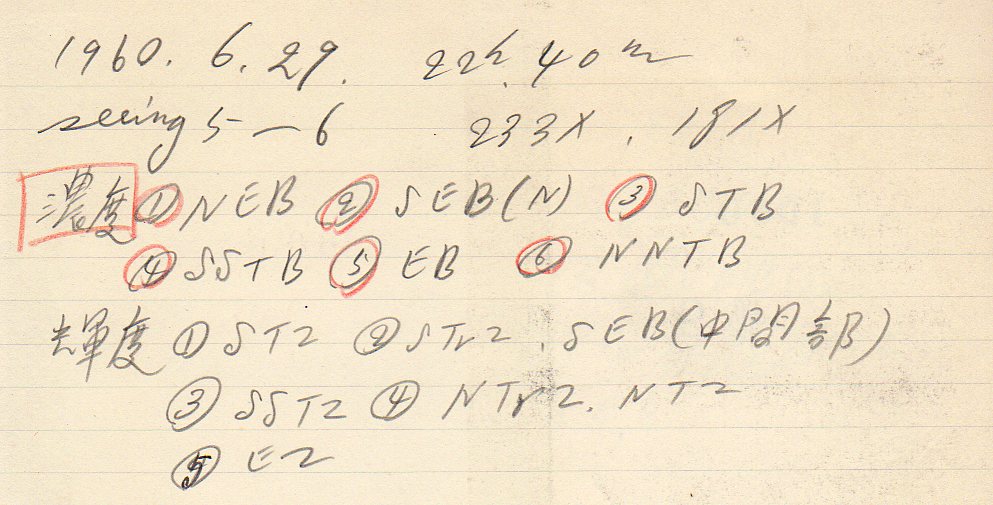 1960. 6. 29. 22h. 40m
seeing 5—6 233X, 181X
濃度 ① NEB ② SEB(N) ③ STB
④ SSTB ⑤ EB ⑥ NNTB
輝度 ① STZ ② STrZ. SEB(中間部)
③ SSTZ ④ NTrZ. NTZ
⑤ EZ